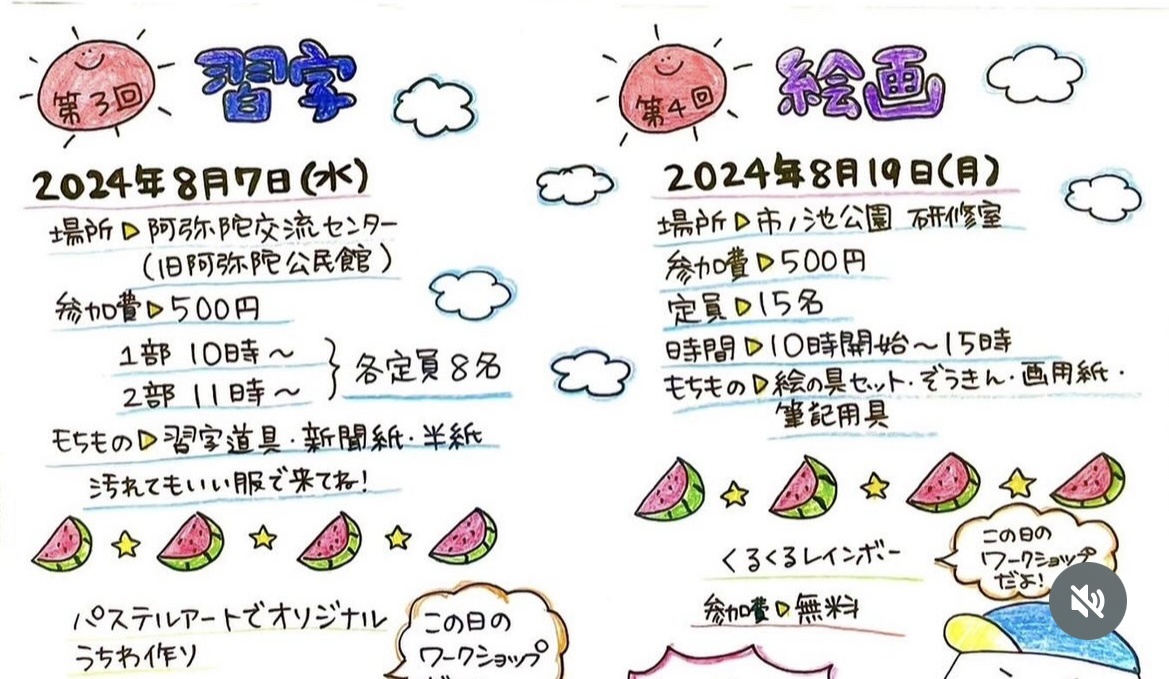 第3回
習字
2024年8月7日(水)
場所▷阿弥陀交流センター
(旧阿弥陀公民館)
参加費▷500円
1部 10時〜
2部 11時〜
各定員8名
もちもの▷習字道具・新聞紙・半紙
汚れてもいい服で来てね!
パステルアートでオリジナル
うちわ作り
この日の
ワークショップ
第4回
絵画
2024年8月19日(月)
場所▷市ノ池公園 研修室
参加費▷500円
定員▷15名
時間▷10時開始〜15時
もちもの▷絵の具セット・ぞうきん・画用紙・
筆記用具
くるくるレインボー
参加費▷無料
この日の
ワークショップ
だよ!